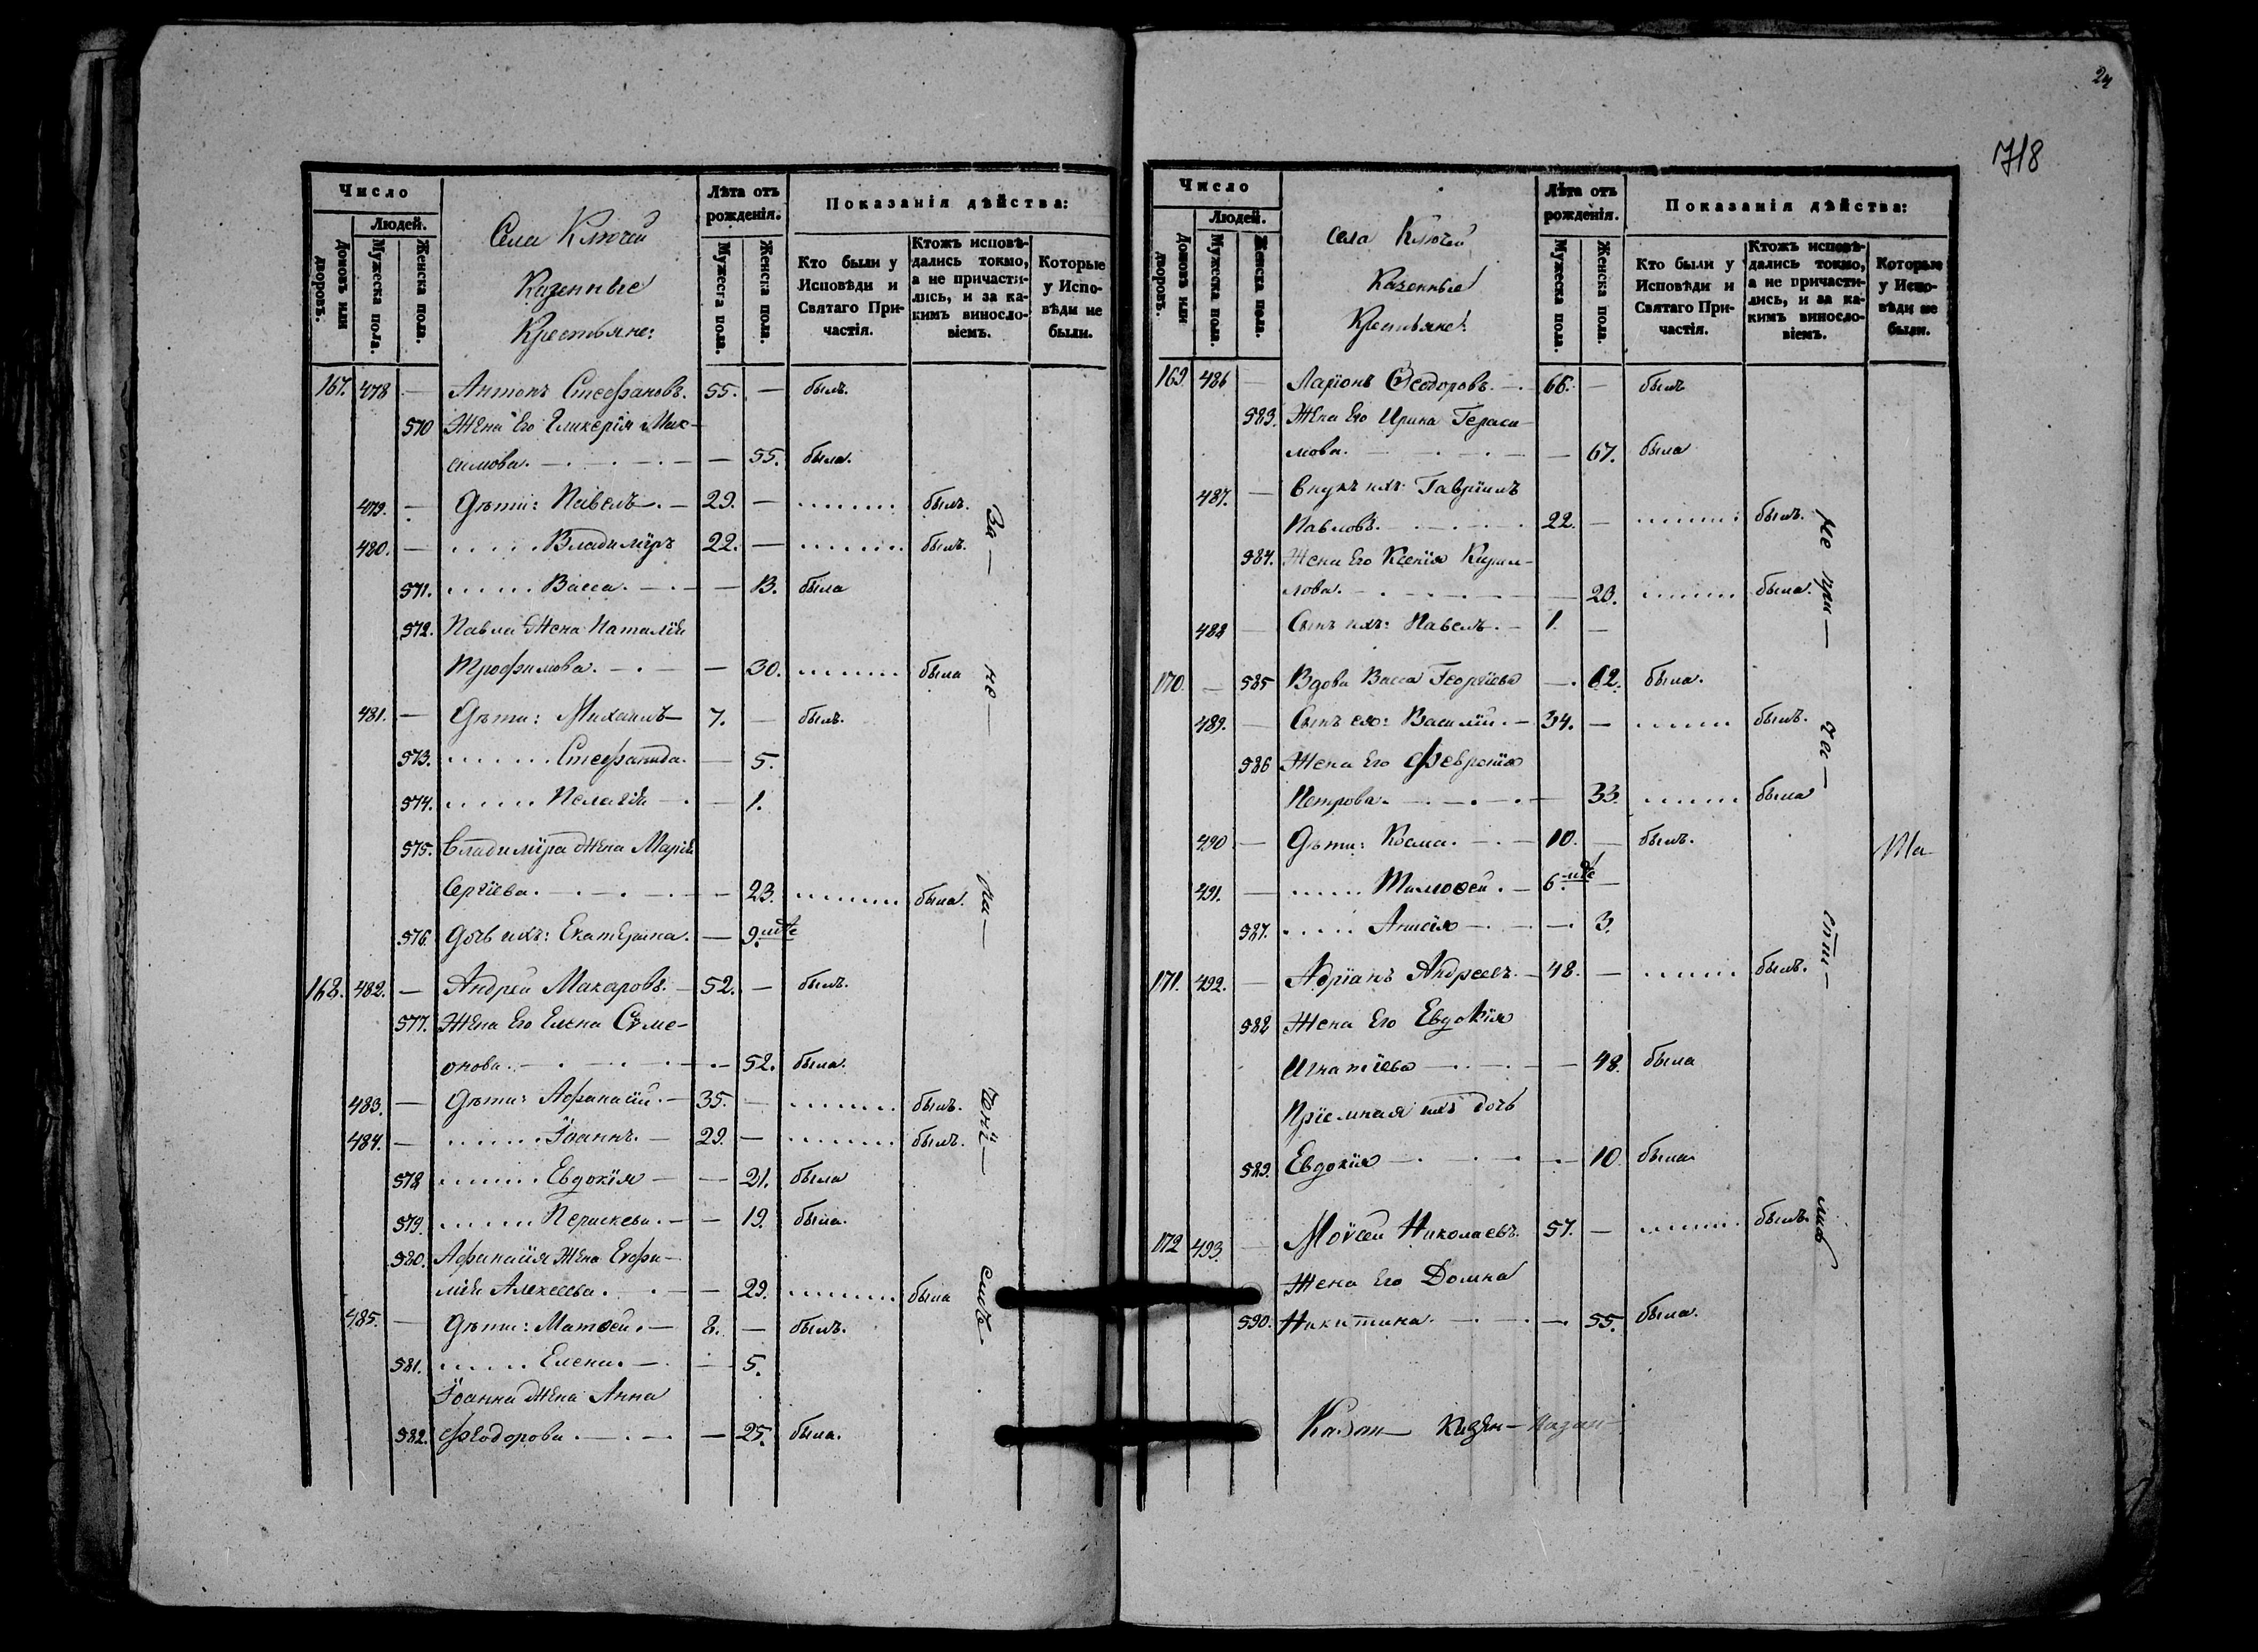 24
718
Число
Людей.
Домовъ или дворовъ.
Мужеска пола.
Женска пола.
Села Ключей
Казенные
Крестьяне:
Лѣта отъ рожденія.
Мужеска пола.
Женска пола.
Показанія дѣйства:
Кто были у Исповѣди и Святаго Причастія.
Ктожъ исповѣдались токмо, а не причастились, и за какимъ винословіемъ.
Которые у Исповѣди не были.
167. 478 — Антонъ Стефановъ. 55. — былъ.
570 Жена Его Гликерія Мак-
симова. — 55. была.
479. — Дѣти: Павелъ. — 29. — былъ.
480. — Владиміръ 22. — былъ.
571. Васса. — 13. была
572. Павла Жена Наталія
Трофимова. — 30. была
481. — Дѣти: Михаилъ 7. — былъ.
573. Стефанида. — 5.
574. Пелагія — 1.
575. Владиміра Жена Марія
Сергіева. — 23. была.
576. Дочь ихъ: Екатерина. — 9. мѣс
168. 482. — Андрей Макаровъ. 52. — былъ.
577. Жена Его Елена Симе-
онова. — 52. была.
483. — Дѣти: Афанасій. — 35. — былъ.
484. — Іоаннъ. — 29. — былъ.
578 Евдокія — 21. была
579. Пераскева. — 19. была.
580. Афанасія Жена Евфи-
мія Алексеева. — 29. была
485. — Дѣти: Матѳей. — 8. — былъ.
581. Елена. — 5.
Іоанна Жена Анна
582. Феодорова. — 25. была.
За — не —
ра —
чені —
емъ
Число
Людей.
Домовъ или дворовъ.
Мужеска пола.
Женска пола.
села Ключей
Казенные
Крестьяне:
Лѣта отъ рожденія.
Мужеска пола.
Женска пола.
Показанія дѣйства:
Кто были у Исповѣди и Святаго Причастія.
Ктожъ исповѣдались токмо, а не причастились, и за какимъ винословіемъ.
Которые у Исповѣди не были.
169. 486 — Ларіонъ Ѳеодоровъ. 66. — былъ
583. Жена Его Ирина Гераси-
мова. — 67. была
487. — Внукъ ихъ: Гавріилъ
Павловъ. 22. — былъ.
584. Жена Его Ксенія Кирил-
лова. — 23. была.
488 — Сынъ ихъ: Павелъ. — 1. —
170. — 585 Вдова Васса Георгіева — 62. была.
489. — Сынъ ея: Василій. — 34. — былъ.
586 Жена Его Февронія
Петрова. — 33. была
490 — Дѣти: Косма. — 10. — былъ.
491. — Тимоѳей. — 6. мѣс —
587. Анисія — 3.
171. 492. — Адріанъ Андреевъ. — 48. — былъ.
588 Жена Его Евдокія
Игнатіева — 48. была
Пріемная ихъ дочь
589. Евдокія — 10. была
172 493. — Мойсей Николаевъ. 57. — былъ.
Жена Его Домна
590. Никитина. — 55. была.
не при —
час —
ти —
лись